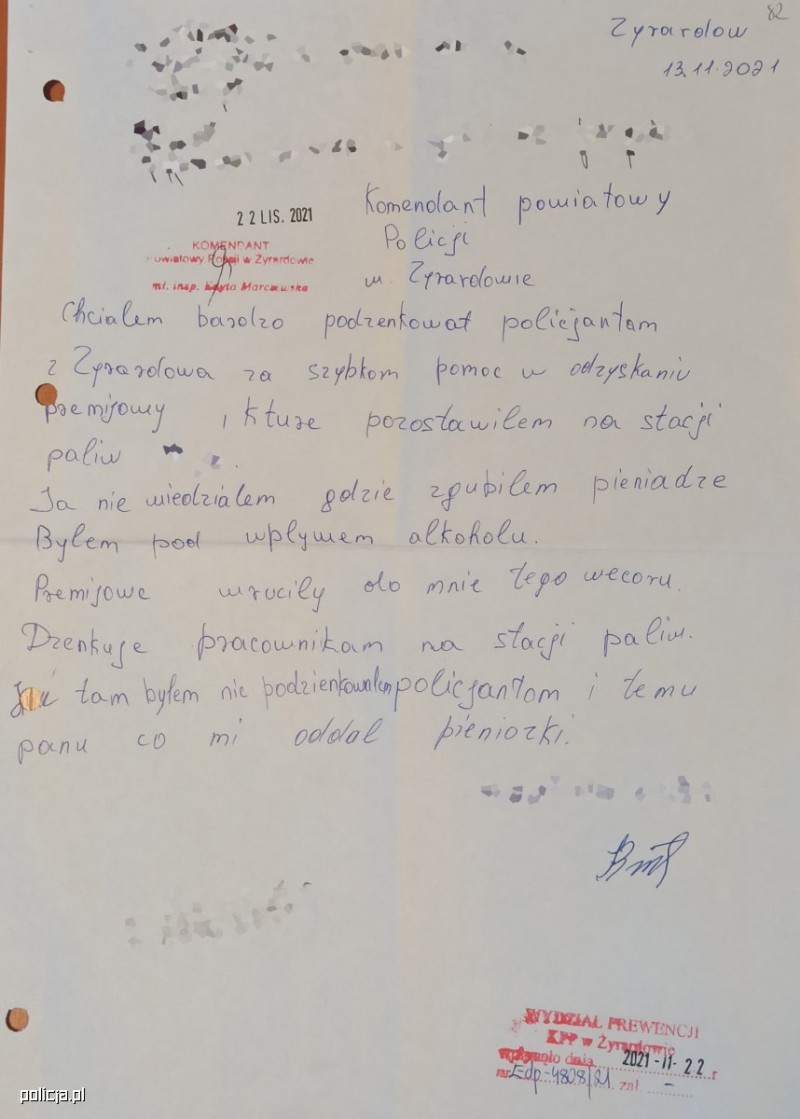 82
Zyrardow
13.11.2021
22 LIS. 2021
Komendant powiatowy
Policji
w. Zyrardowie
KOMENDANT
Powiatowy Policji w Żyrardowie
mł. insp. Marczewska
Chcialem bardzo podzenkowat policjantam
z Zyrardowa za szybkom pomoc w odzyskaniu
premijowy , kture pozostawilem na stacji
paliw
Ja nie wiedzialem gdzie zgubilem pieniadze
Bylem pod wplywem alkoholu.
Premijowe wrucily do mnie tego wecoru.
Dzenkuje pracownikam na stacji paliw.
tam byłem nie podzienkowałem policjantom i temu
panu co mi oddal pieniozki.
WYDZIAŁ PREWENCJI
KPP w Żyrardowie
wpłynęło dnia 2021-11-22 r
nr Edp-4808/21 zał. -
policja.pl